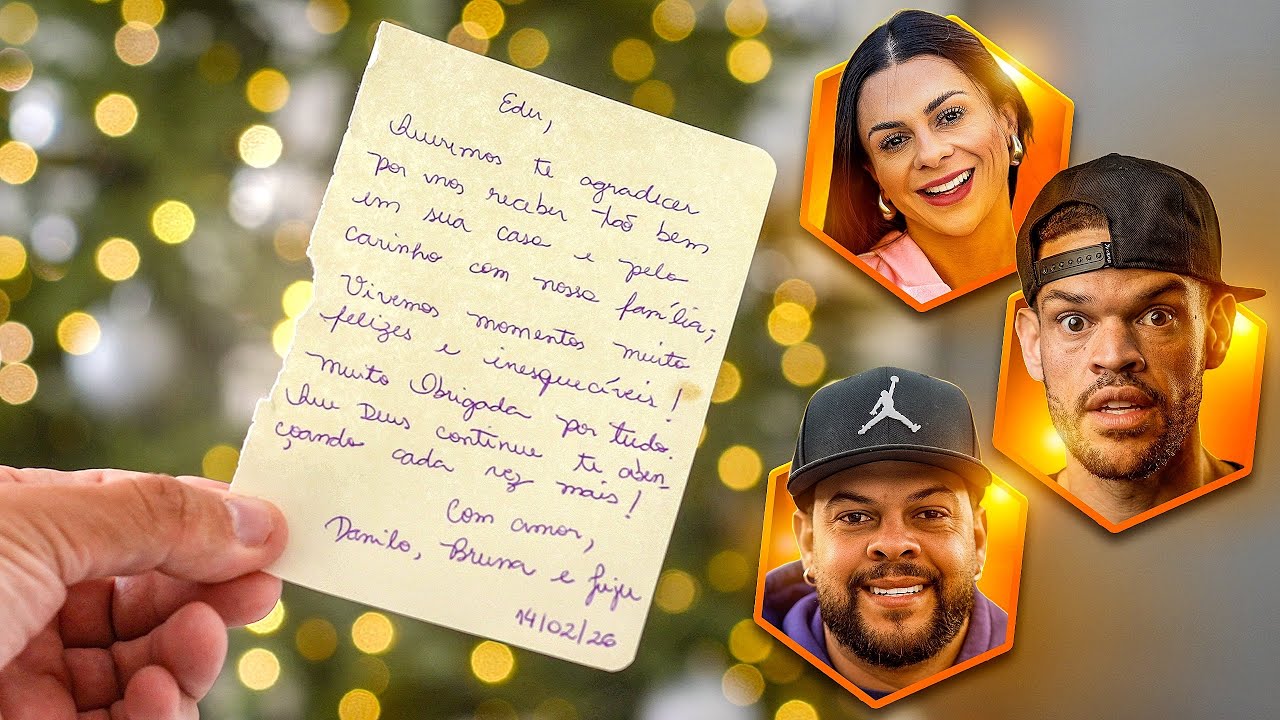 Edu,
Queremos te agradecer
por nos receber tão bem
em sua casa e pelo
carinho com nossa família;
Vivemos momentos muito
felizes e inesquecíveis!
Muito Obrigada por tudo.
Que Deus continue te aben-
çoando cada vez mais!
Com amor,
Danilo, Bruna e Juju
14/02/26